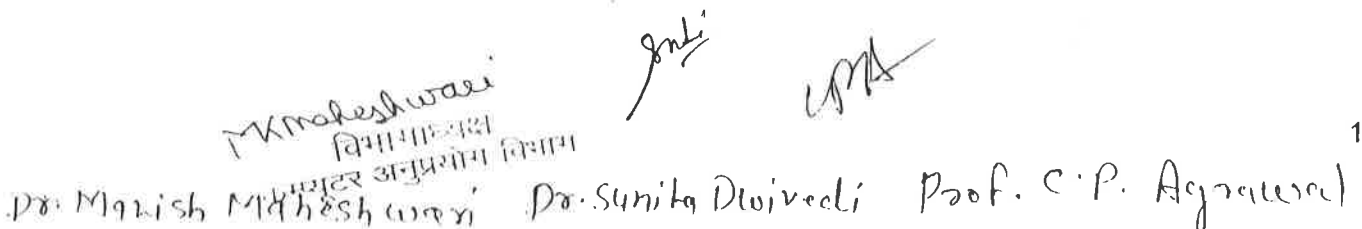 MKmaheshwari
विभागाध्यक्ष
कम्प्यूटर अनुप्रयोग विभाग
1
Dr. Manish Maheshwari Dr. Sunita Dwivedi Prof. C.P. Agrawal